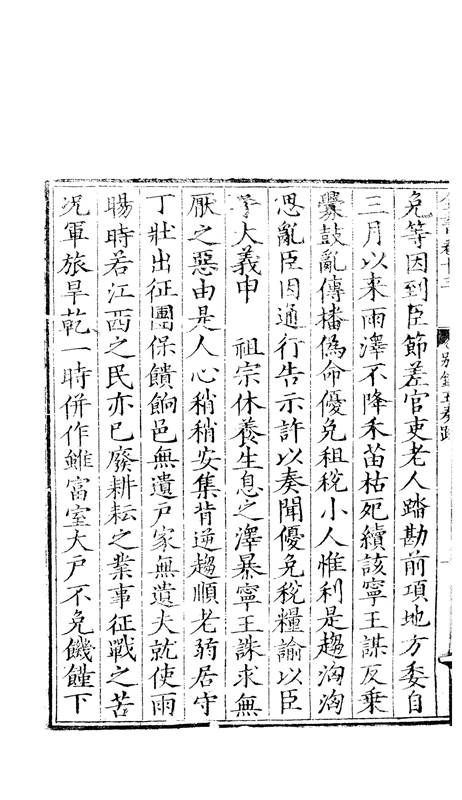 全書卷十三　別錄五奏疏
免等因到臣節差官吏老人踏勘前項地方委自
三月以來雨澤不降禾苗枯死續該寧王謀反乘
釁鼓亂傳播僞命優免租稅小人惟利是趨洶洶
思亂臣因通行告示許以奏聞優免稅糧諭以臣
子大義申　祖宗休養生息之澤暴寧王誅求無
厭之惡由是人心稍稍安集背逆趨順老弱居守
丁壯出征團保饋餉邑無遺戶家無遺夫就使雨
暘時若江西之民亦已廢耕耘之業事征戰之苦
况軍旅旱乾一時併作雖富室大戶不免饑饉下